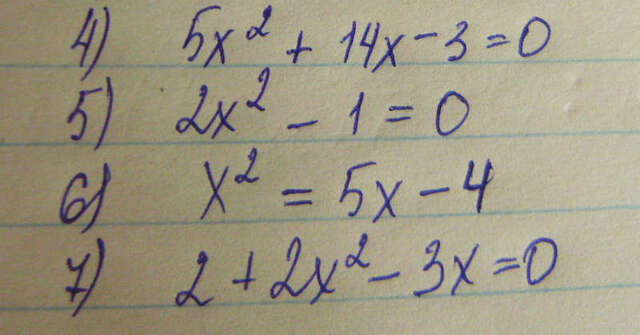 4) 5x² + 14x - 3 = 0
5) 2x² - 1 = 0
6) x² = 5x - 4
7) 2 + 2x² - 3x = 0